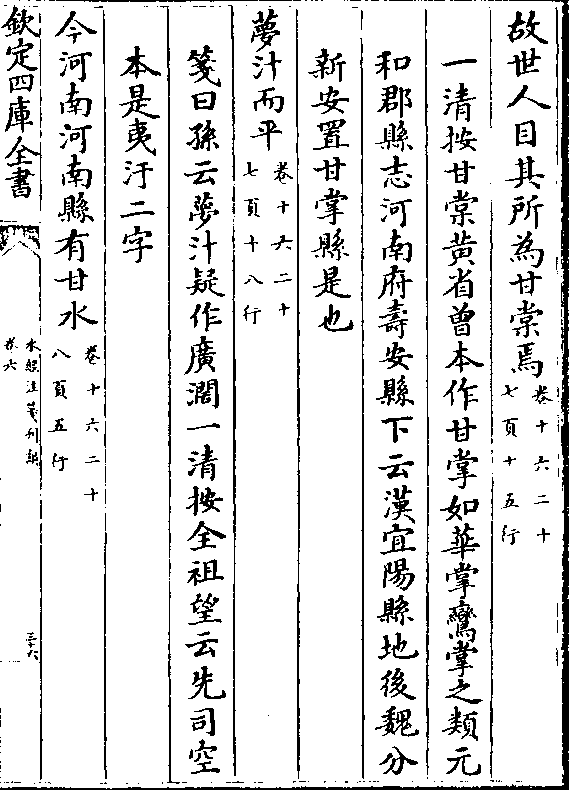 故世人目其所為甘棠焉卷十六二十七頁十五行
一清按甘棠黄省曾本作甘掌如華掌鸞掌之類元
和郡縣志河南府壽安縣下云漢宜陽縣地後魏分
新安置甘掌縣是也
夢汁而平卷十六二十七頁十八行
箋曰孫云夢汁疑作廣濶一清按全祖望云先司空
本是夷汙二字
今河南河南縣有甘水卷十六二十八頁五行
欽定四庫全書
水經注箋刊誤
卷六
三十六